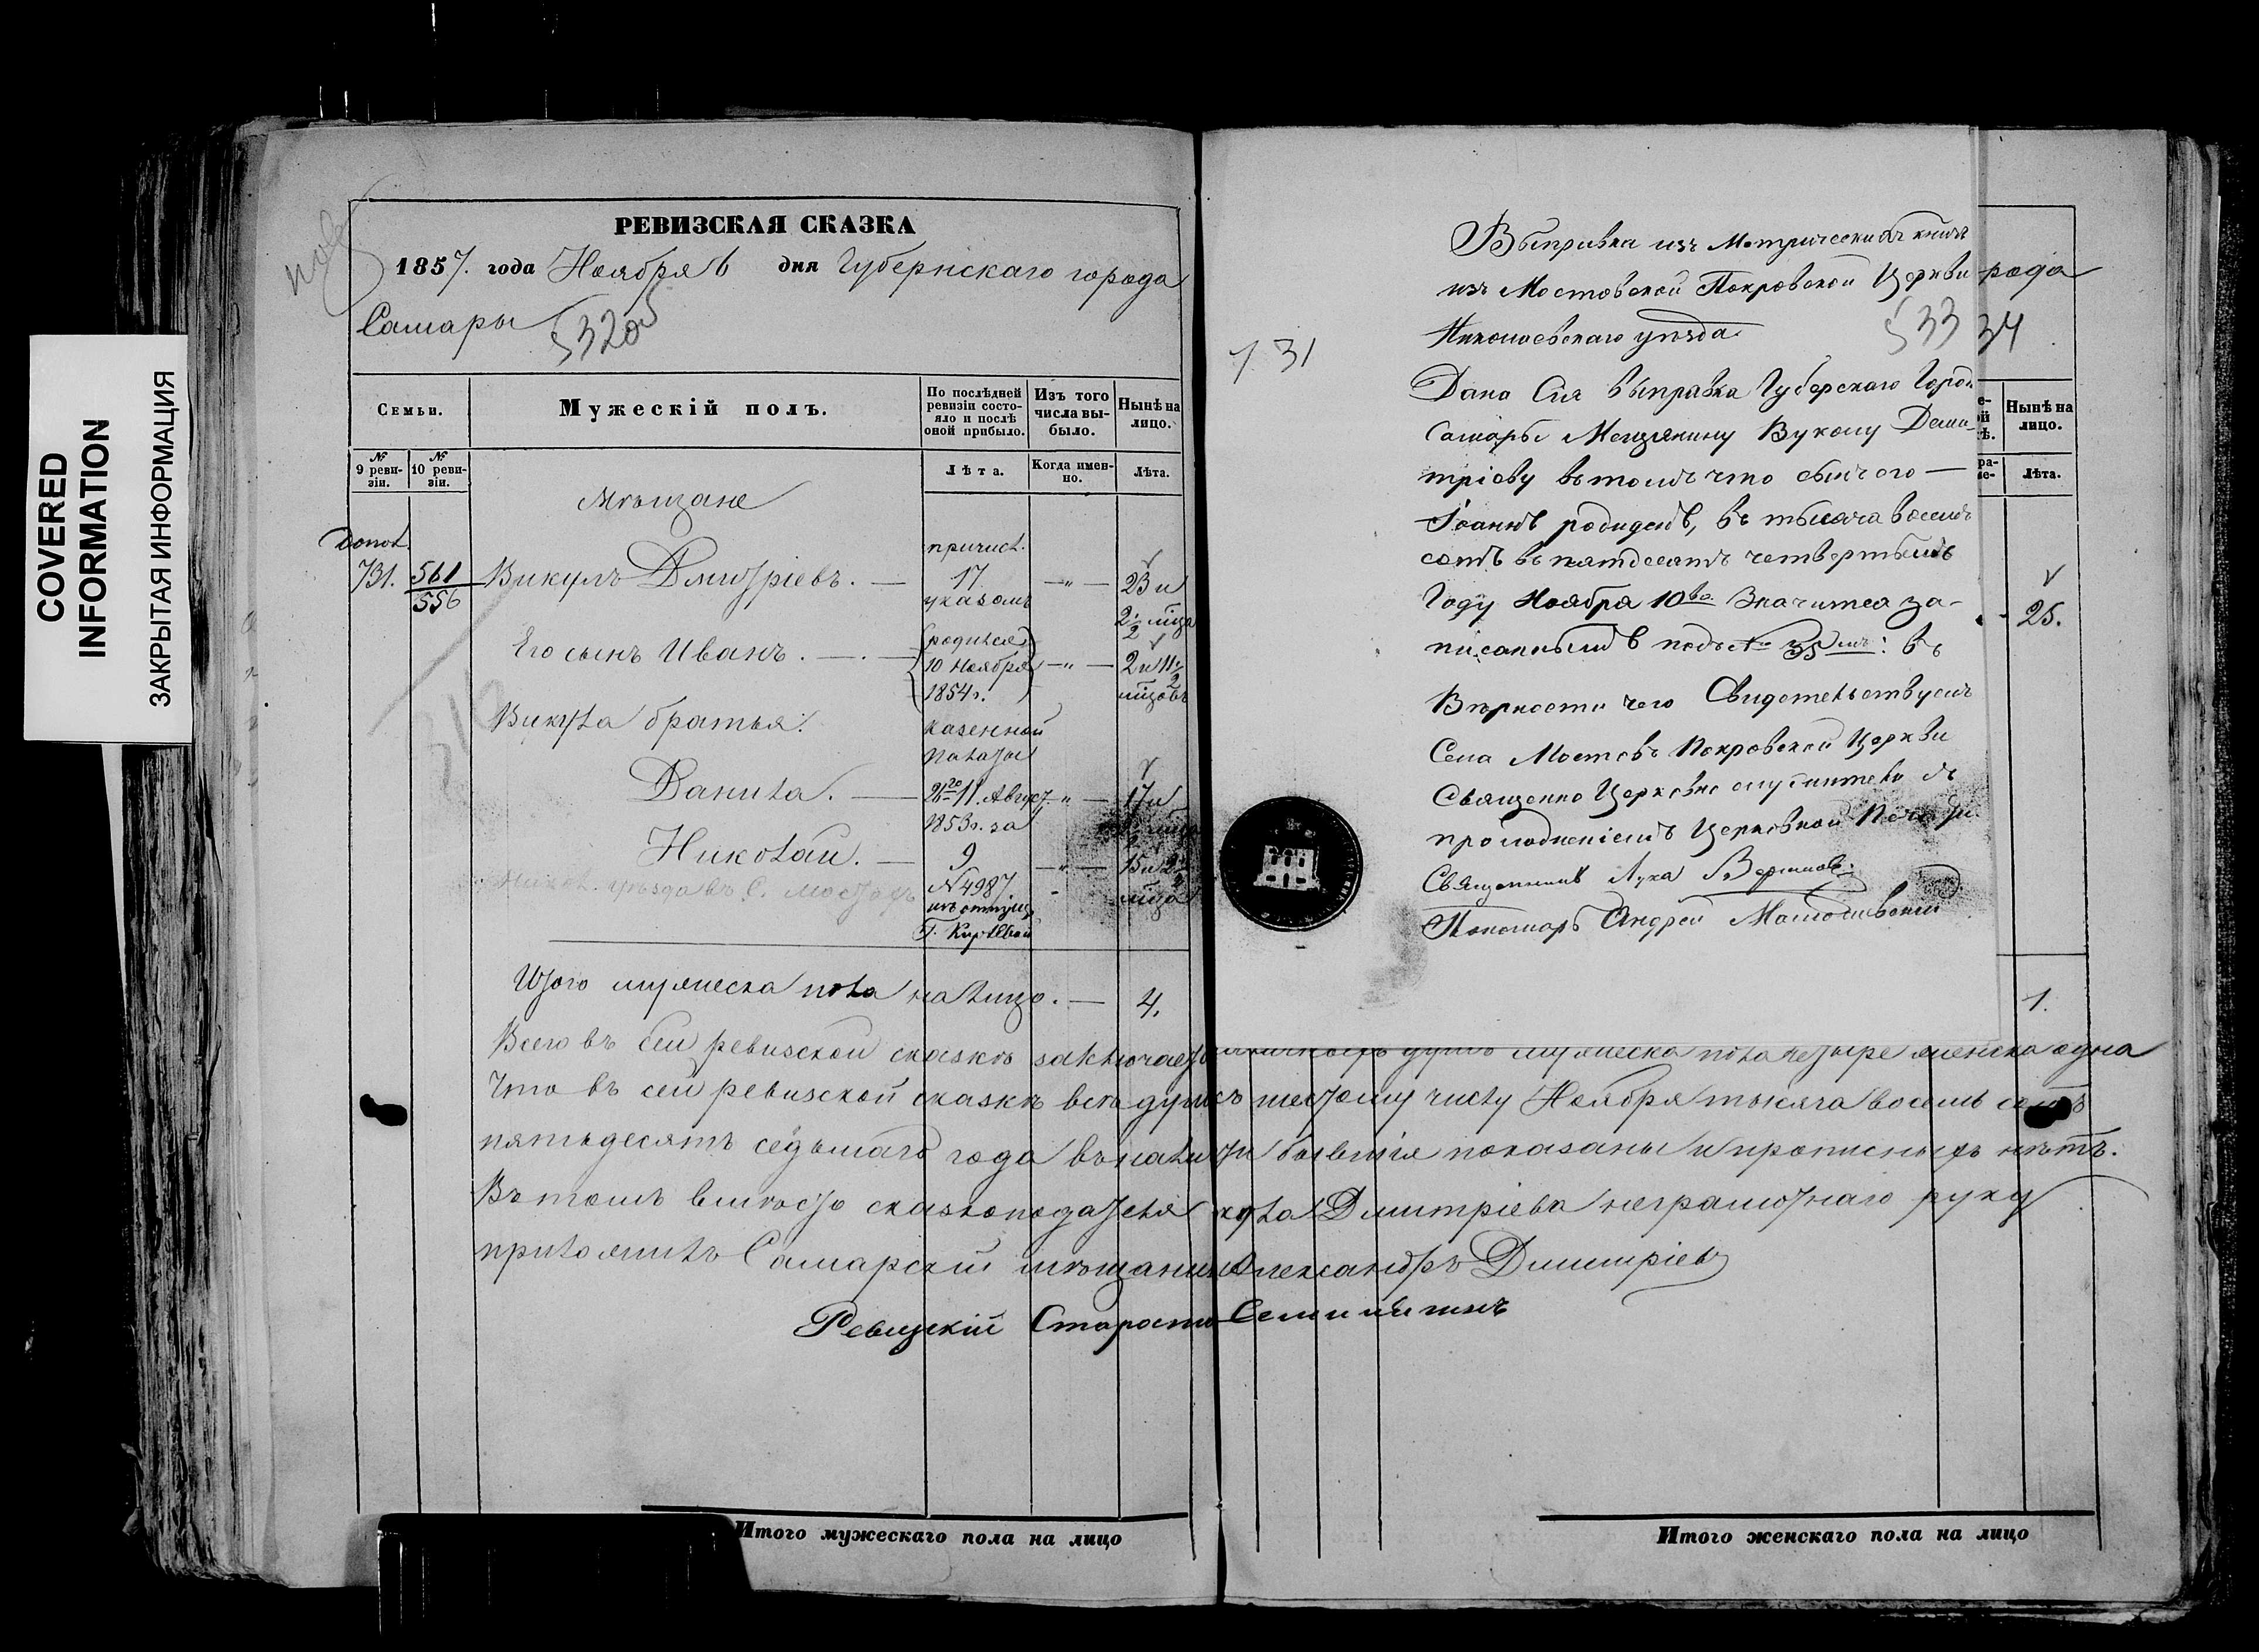 COVERED
INFORMATION
ЗАКРЫТАЯ ИНФОРМАЦИЯ
РЕВИЗСКАЯ СКАЗКА
1857. года Ноября 6 дня Губернскаго города
Самары
532
Семьи.
Мужескій полъ.
По послѣдней ревизіи состояло и послѣ оной прибыло.
Изъ того числа выбыло.
Нынѣ на лицо.
№ 9 ревизіи.
№ 10 ревизіи.
Лѣта.
Когда именно.
Лѣта.
мѣщане
Допол. причисл.
731. 561 Викулъ Дмитріевъ. — 17 — „ — 23 и
556 указомъ 2 1/2 мѣца
Его сынъ Иванъ. (родился 10 Ноября 1854 г.) — „ — 2 и 11 1/2 мѣцовъ
Викула братья: казенной
палаты
Данила. — 11. Август. — „ — 17 и
1853 г. за
Николай. — 9 — „ — 15 и 2 1/2
№ 4987 мѣца
Итого мужеска пола на лицо. — 4.
Всего въ сей ревизской сказкѣ заключается наличныхъ душъ мужеска пола четыре женска одна
Что въ сей ревизской сказкѣ всѣ души къ шестому числу Ноября тысяча восемь сотъ
пятьдесятъ седьмаго года въ наличности бывшія показаны и прописныхъ нѣтъ.
Въ томъ вмѣсто сказкоподателя Викула Дмитріева неграмотнаго руку
приложилъ Самарскій мѣщанинъ Александръ Димитріевъ
Ревизскій Староста
Итого мужескаго пола на лицо
731
Выправка изъ Метрическихъ книгъ
изъ Мостовской Покровской Церкви
Николаевскаго уѣзда
533
рода
34
Дана Сія выправка Губерскаго Город
Самары Мещянину Вуколу Деми-
тріеву въ томъ что сынъ его —
Іоаннъ родился, въ тысяча восемь
сотъ въ пятдесятъ четвертымъ
Году Ноября 10го Значится за-
писаннымъ подъ № 35мъ: въ
Вѣрности чего Свидетельствуемъ
Села Мостовъ Покровской Церкви
Священно Церковно служители съ
приложеніемъ Церковной Печати
Священникъ Лука
Пономарь Андрей
Нынѣ на лицо.
Лѣта.
25.
1.
Итого женскаго пола на лицо